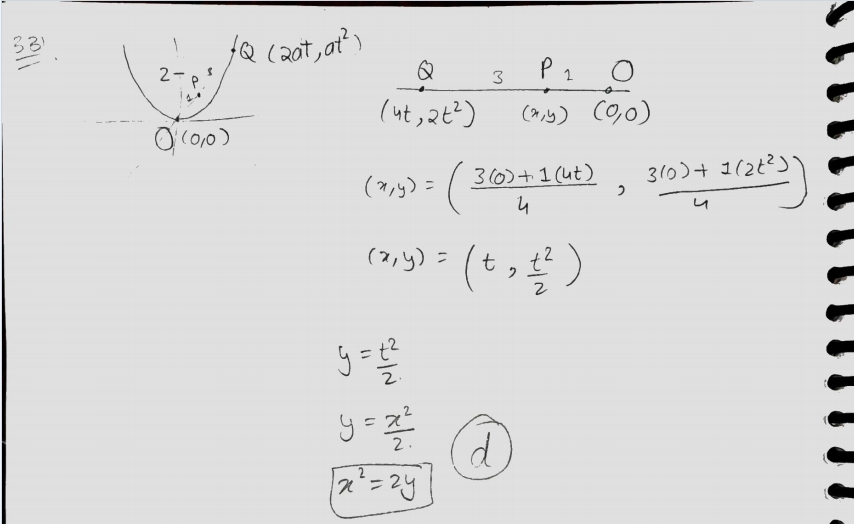 33).
Q (2at, at²)
2
P 3
1
O (0,0)
Q 3 P 1 O
(4t, 2t²) (x,y) (0,0)
(x,y) = ( 3(0)+1(4t) / 4 , 3(0)+1(2t²) / 4 )
(x,y) = ( t , t² / 2 )
y = t² / 2.
y = x² / 2.
x² = 2y
d